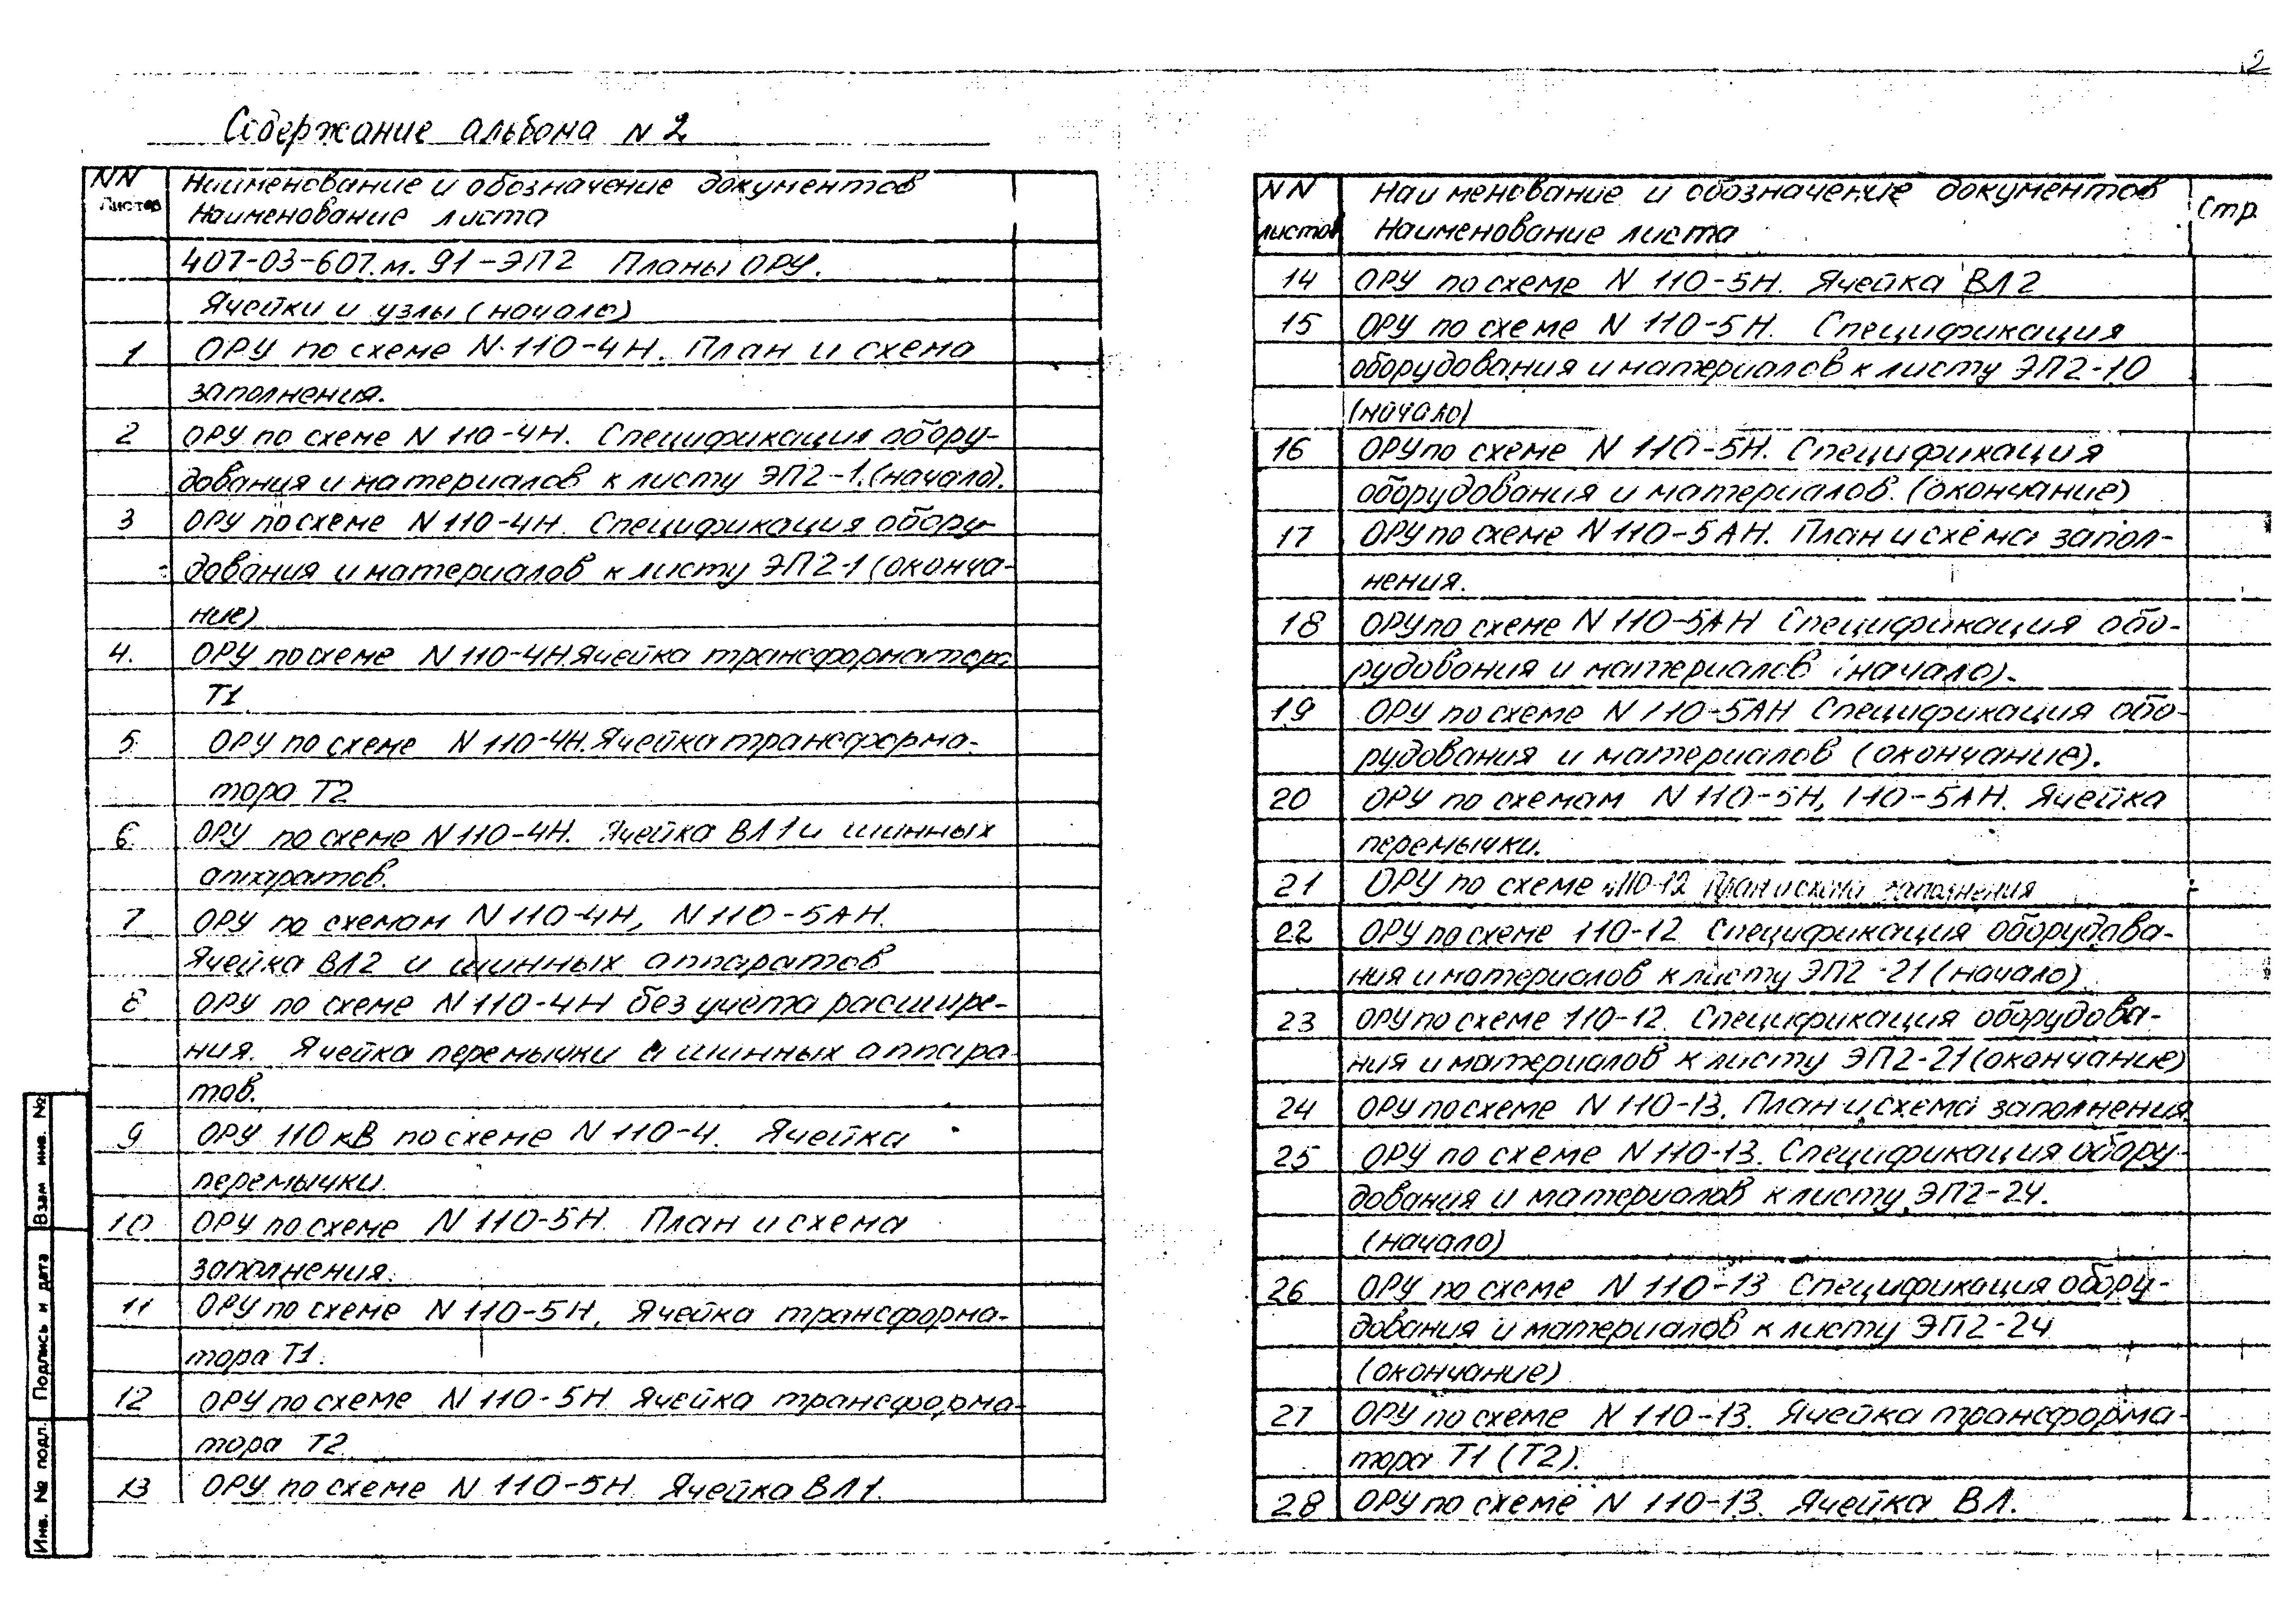 2
Содержание альбома N 2
NN
Листов
Наименование и обозначение документов
Наименование листа
407-03-607.м.91-ЭП2 Планы ОРУ.
Ячейки и узлы (начало)
1 ОРУ по схеме N 110-4Н. План и схема
заполнения.
2 ОРУ по схеме N 110-4Н. Спецификация обору-
дования и материалов к листу ЭП2-1.(начало).
3 ОРУ по схеме N 110-4Н. Спецификация обору-
дования и материалов к листу ЭП2-1 (оконча-
ние)
4. ОРУ по схеме N 110-4Н.Ячейка трансформатора
Т1
5 ОРУ по схеме N 110-4Н.Ячейка трансформа-
тора Т2
6 ОРУ по схеме N 110-4Н. Ячейка ВЛ1 и шинных
аппаратов.
7 ОРУ по схемам N 110-4Н, N 110-5АН.
Ячейка ВЛ2 и шинных аппаратов
8 ОРУ по схеме N 110-4Н без учета расшире-
ния. Ячейка перемычки и шинных аппара-
тов.
9 ОРУ 110 кВ по схеме N 110-4. Ячейка
перемычки.
10 ОРУ по схеме N 110-5Н. План и схема
заполнения.
11 ОРУ по схеме N 110-5Н. Ячейка трансформа-
тора Т1.
12 ОРУ по схеме N 110-5Н Ячейка трансформа-
тора Т2
13 ОРУ по схеме N 110-5Н. Ячейка ВЛ1.
NN
листов
Наименование и обозначение документов
Наименование листа
Стр.
14 ОРУ по схеме N 110-5Н. Ячейка ВЛ2
15 ОРУ по схеме N 110-5Н. Спецификация
оборудования и материалов к листу ЭП2-10
(начало)
16 ОРУ по схеме N 110-5Н. Спецификация
оборудования и материалов. (окончание)
17 ОРУ по схеме N 110-5АН. План и схема запол-
нения.
18 ОРУ по схеме N 110-5АН Спецификация обо-
рудования и материалов (начало).
19 ОРУ по схеме N 110-5АН Спецификация обо-
рудования и материалов (окончание).
20 ОРУ по схемам N 110-5Н, 110-5АН. Ячейка
перемычки.
21 ОРУ по схеме N110-12 План и схема заполнения
22 ОРУ по схеме 110-12 Спецификация оборудова-
ния и материалов к листу ЭП2-21 (начало)
23 ОРУ по схеме 110-12. Спецификация оборудова-
ния и материалов к листу ЭП2-21 (окончание)
24 ОРУ по схеме N 110-13. План и схема заполнения.
25 ОРУ по схеме N 110-13. Спецификация обору-
дования и материалов к листу ЭП2-24.
(начало)
26 ОРУ по схеме N 110-13 Спецификация обору-
дования и материалов к листу ЭП2-24
(окончание)
27 ОРУ по схеме N 110-13. Ячейка трансформа-
тора Т1 (Т2).
28 ОРУ по схеме N 110-13. Ячейка ВЛ.
Взам инв. №
Подпись и дата
Инв. № подл.